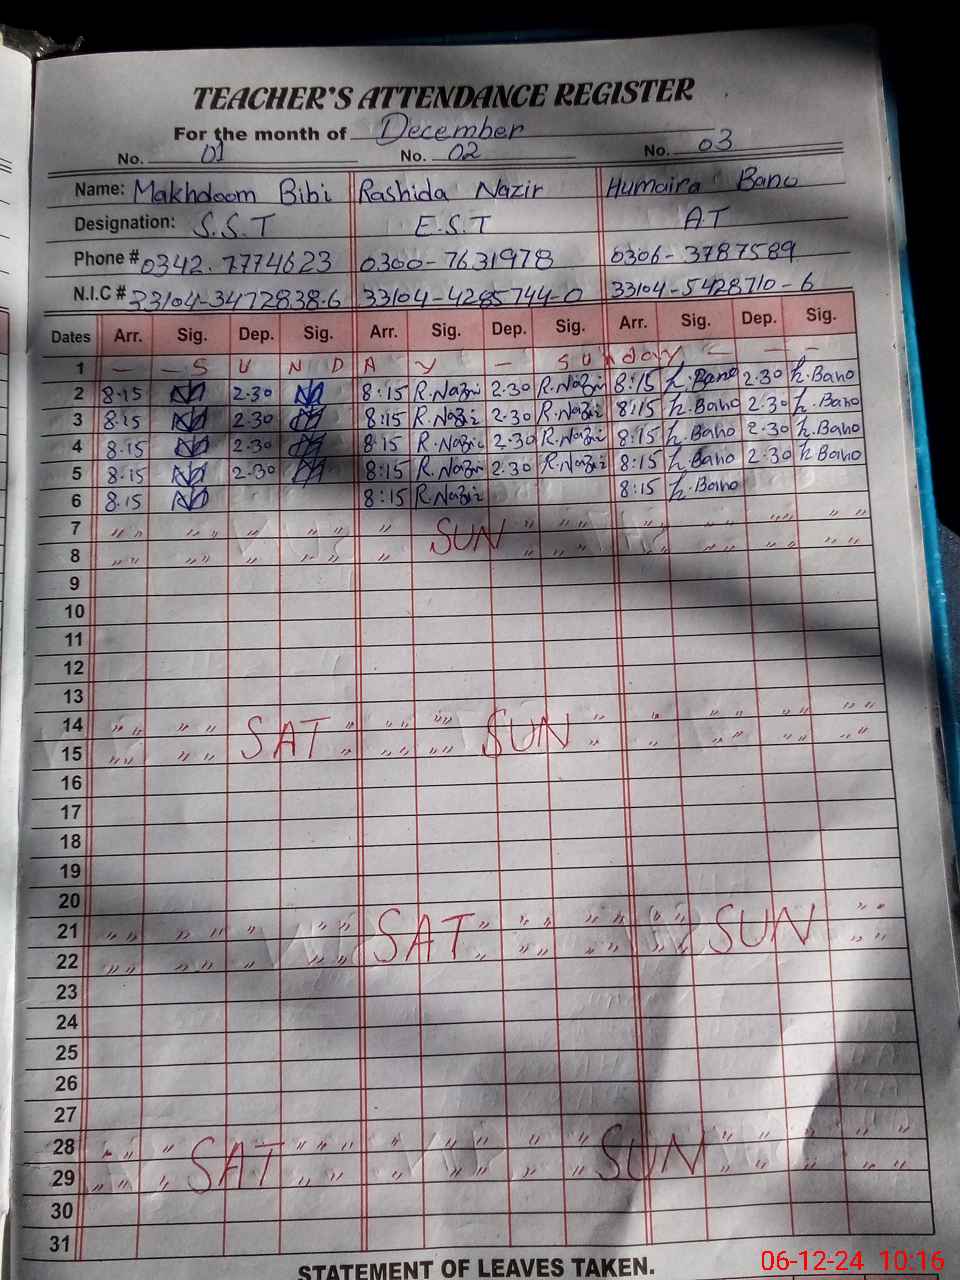 TEACHER'S ATTENDANCE REGISTER
For the month of December
No. 01 No. 02 No. 03
Name: Makhdoom Bibi Rashida Nazir Humaira Bano
Designation: S.S.T E.S.T AT
Phone # 0342.7774623 0300-7631978 0306-3787589
N.I.C # 33104-3472838.6 33104-4285744-0 33104-5428710-6
Dates Arr. Sig. Dep. Sig. Arr. Sig. Dep. Sig. Arr. Sig. Dep. Sig.
1 — — S U N D A Y — Sunday — — —
2 8.15 2.30 8:15 R.Nazir 2.30 R.Nazir 8:15 h.Bano 2.30 h.Bano
3 8.15 2.30 8:15 R.Nazir 2.30 R.Nazir 8:15 h.Bano 2.30 h.Bano
4 8.15 2.30 8:15 R.Nazir 2.30 R.Nazir 8:15 h.Bano 2.30 h.Bano
5 8.15 2.30 8:15 R.Nazir 2.30 R.Nazir 8:15 h.Bano 2.30 h.Bano
6 8.15 8:15 R.Nazir 8:15 h.Bano
7 " " " " " " " SUN " " " " " " " " "
8 " " " " " " " " " " " " " " " "
9
10
11
12
13
14 " " " " SAT " " " " SUN " " " " " " "
15 " " " " " " " " " " " " " " " "
16
17
18
19
20
21 " " " " " " " SAT " " " " " " " SUN " "
22 " " " " " " " " " " " " " "
23
24
25
26
27
28 " " " SAT " " " " " " " SUN " " " " " "
29 " " " " " " " " " " " " " "
30
31
STATEMENT OF LEAVES TAKEN.
06-12-24 10:16